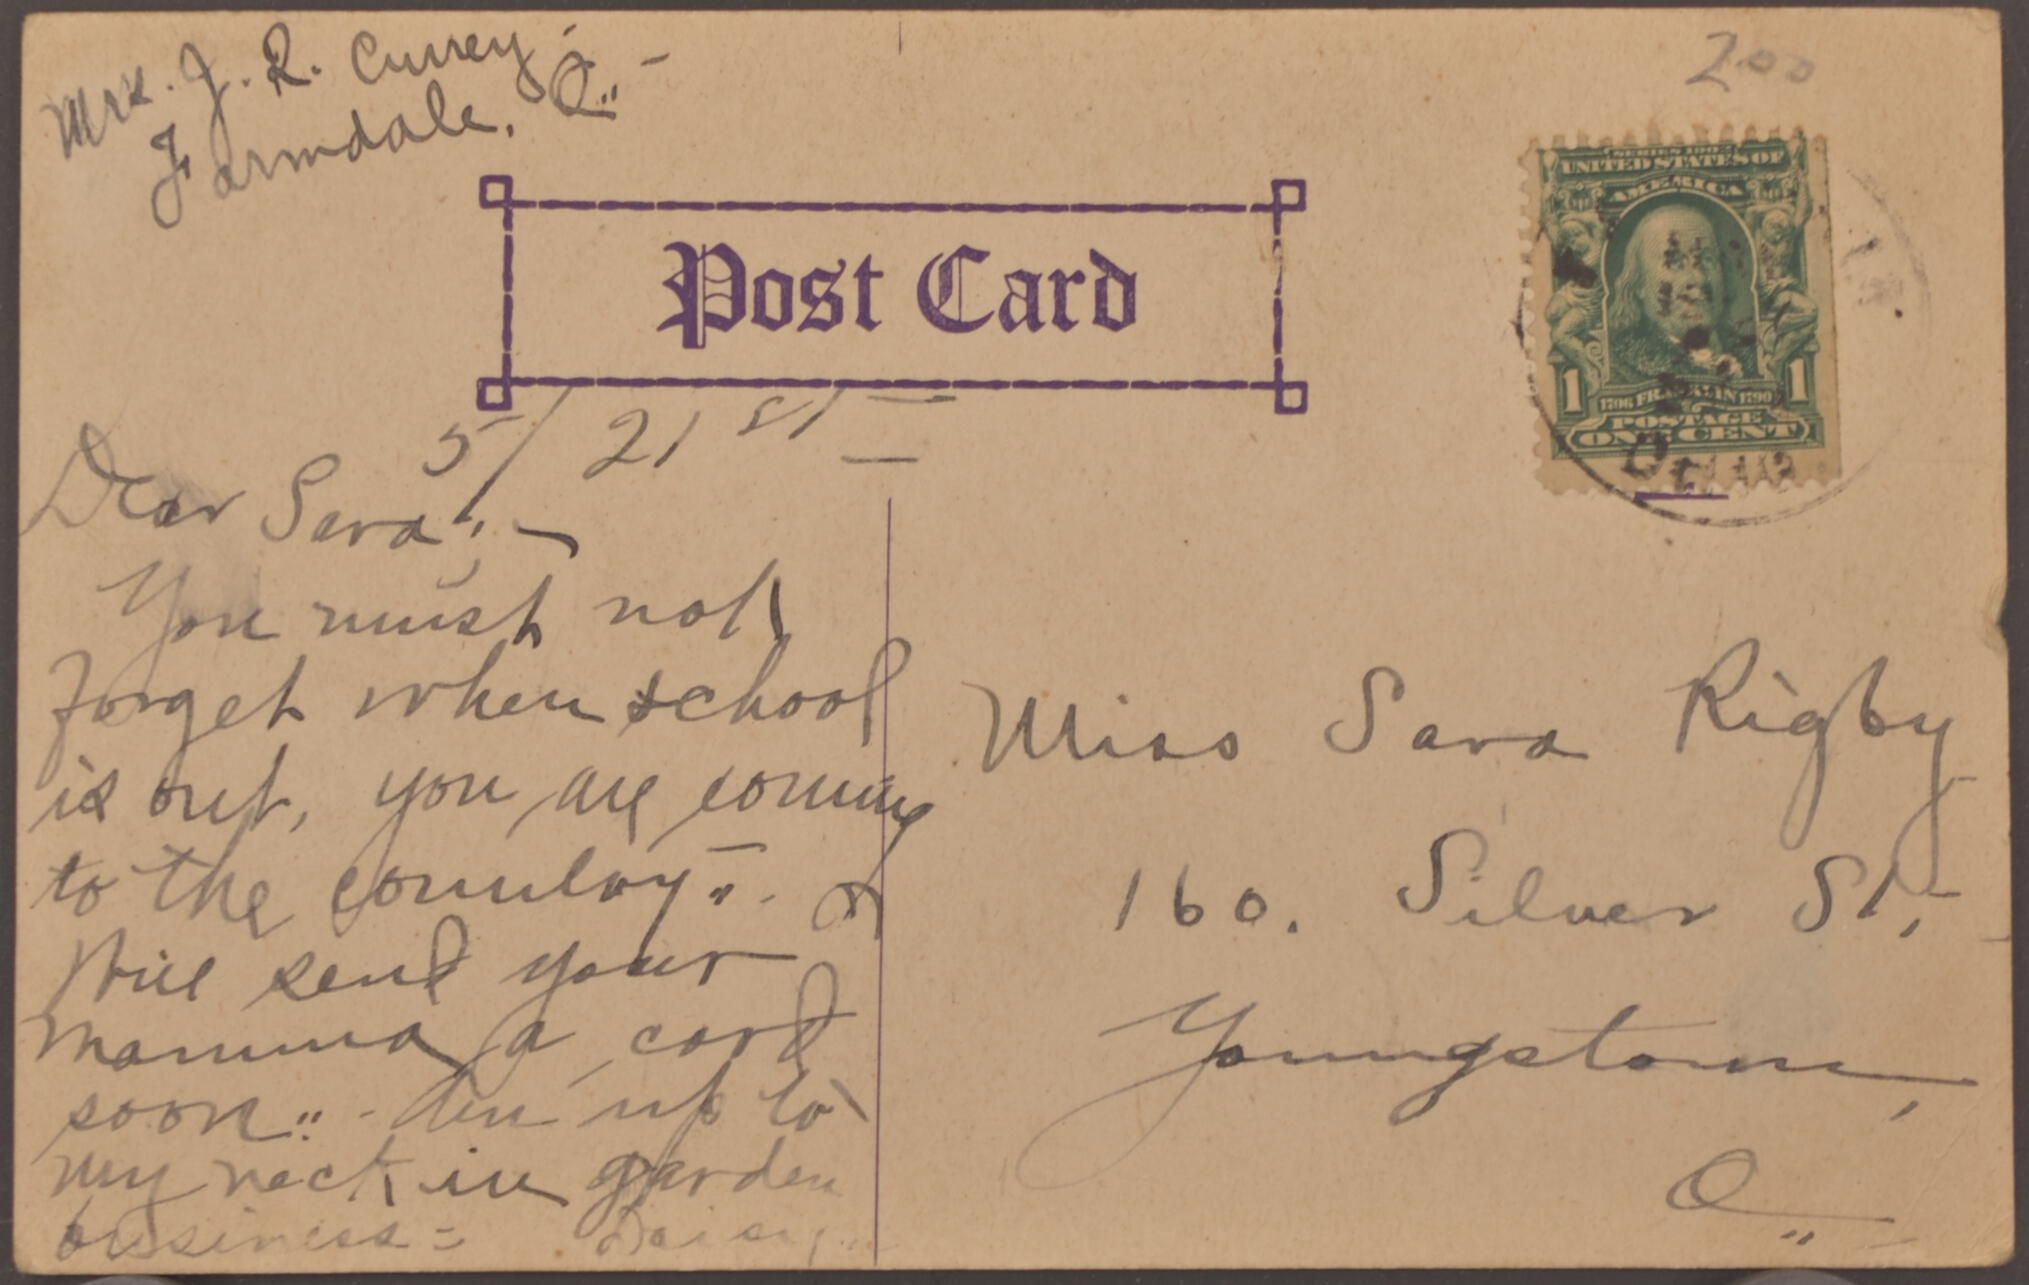 Mrs. J. R. Currey -
Farmdale, O.. -
200
SERIES 1902
UNITED STATES OF
AMERICA
1 1
1706 FRANKLIN 1790
POSTAGE
ONE CENT
Post Card
5/21st =
Dear Sara; -
You must not
forget when school
is out, you are coming
to the country". I
Will send your
mamma a card
soon.. - Am up to
my neck in garden
business = Daisy..
Miss Sara Rigby
160. Silver St,-
Youngstown,
O..